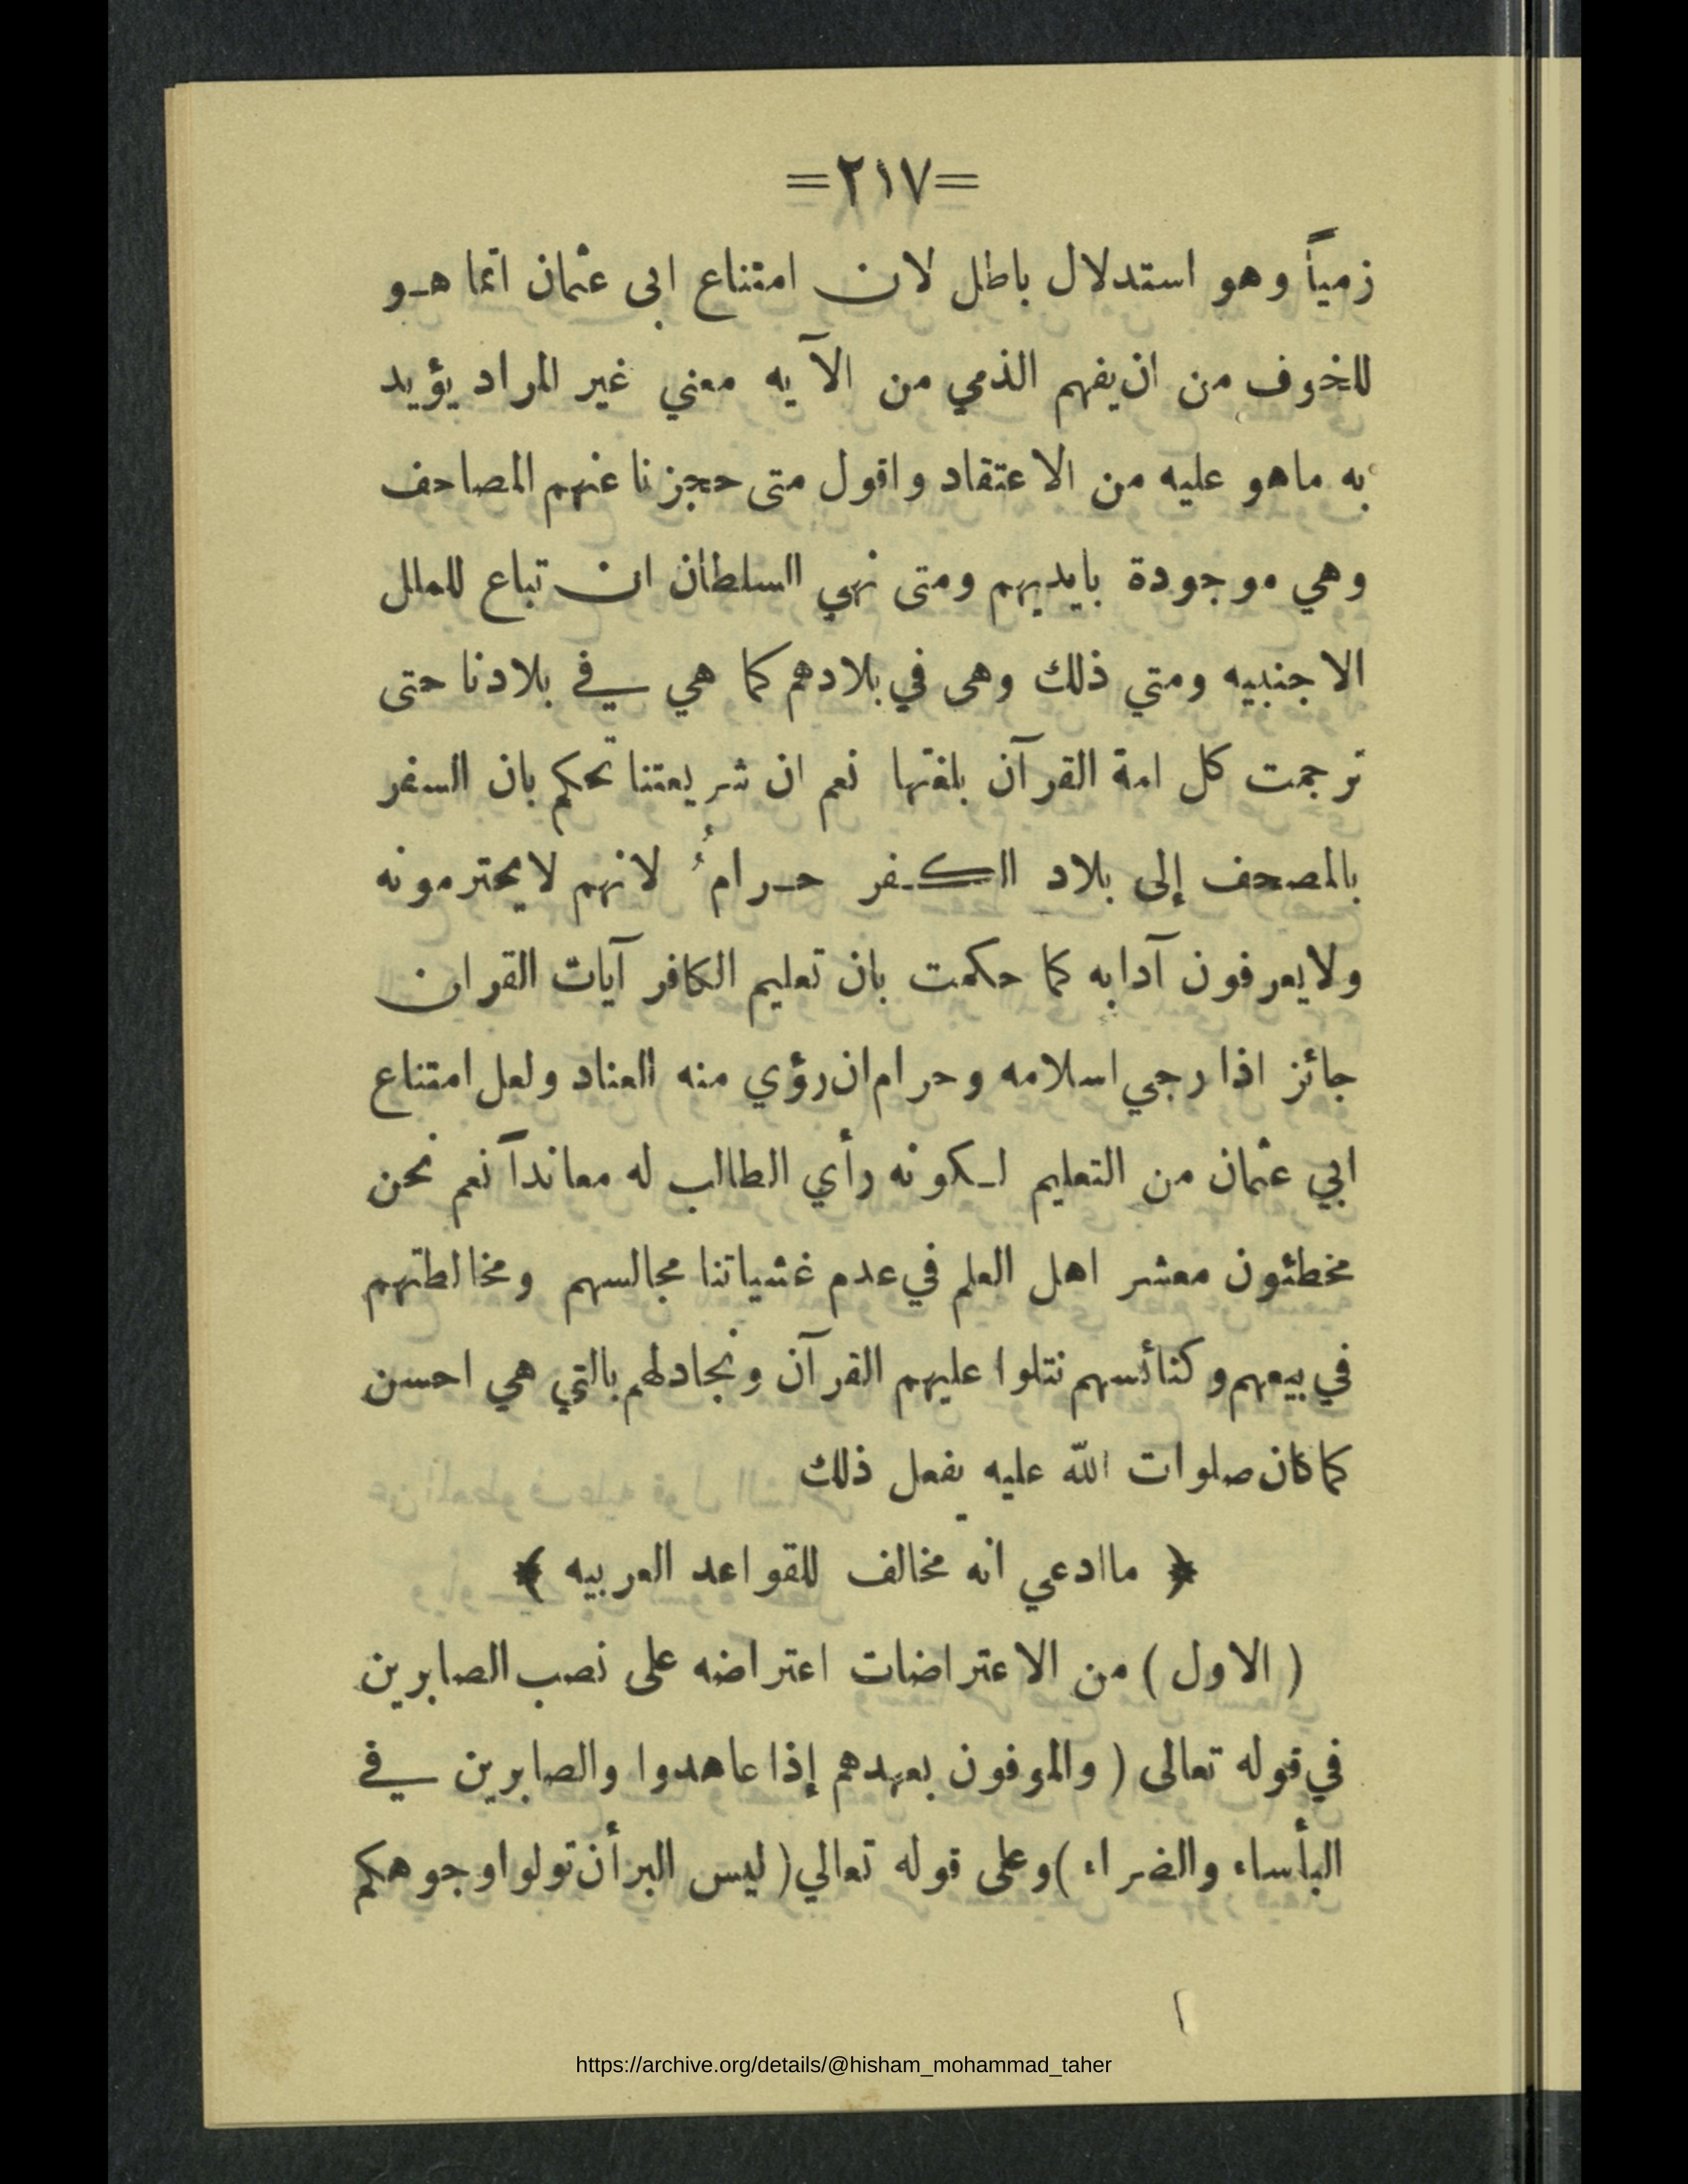 =٢١٧=
زمياً وهو استدلال باطل لان امتناع ابى عثمان انما هـو
للخوف من ان يفهم الذمي من الآيه معني غير المراد يؤيد
به ماهو عليه من الاعتقاد واقول متى حجزنا عنهم المصاحف
وهي موجودة بايديهم ومتى نهي السلطان ان تباع للملل
الاجنبيه ومتي ذلك وهى في بلادهم كما هي في بلادنا حتى
ترجمت كل امة القرآن بلغتها نعم ان شريعتنا تحكم بان السفر
بالمصحف إلى بلاد الكـفر حـرامٌ لانهم لايحترمونه
ولايعرفون آدابه كما حكمت بان تعليم الكافر آيات القران
جائز اذا رجي اسلامه وحرام ان رؤي منه العناد ولعل امتناع
ابي عثمان من التعليم لـكونه رأي الطالب له معانداً نعم نحن
مخطئون معشر اهل العلم في عدم غشياتنا مجالسهم ومخالطتهم
في بيعهم وكنائسهم نتلوا عليهم القرآن ونجادلهم بالتي هي احسن
كما كان صلوات الله عليه يفعل ذلك
﴿ ماادعي انه مخالف للقواعد العربيه ﴾
( الاول ) من الاعتراضات اعتراضه على نصب الصابرين
في قوله تعالى ( والموفون بعهدهم إذا عاهدوا والصابرين في
البأساء والضراء ) وعلى قوله تعالي ( ليس البر أن تولوا وجوهكم
https://archive.org/details/@hisham_mohammad_taher